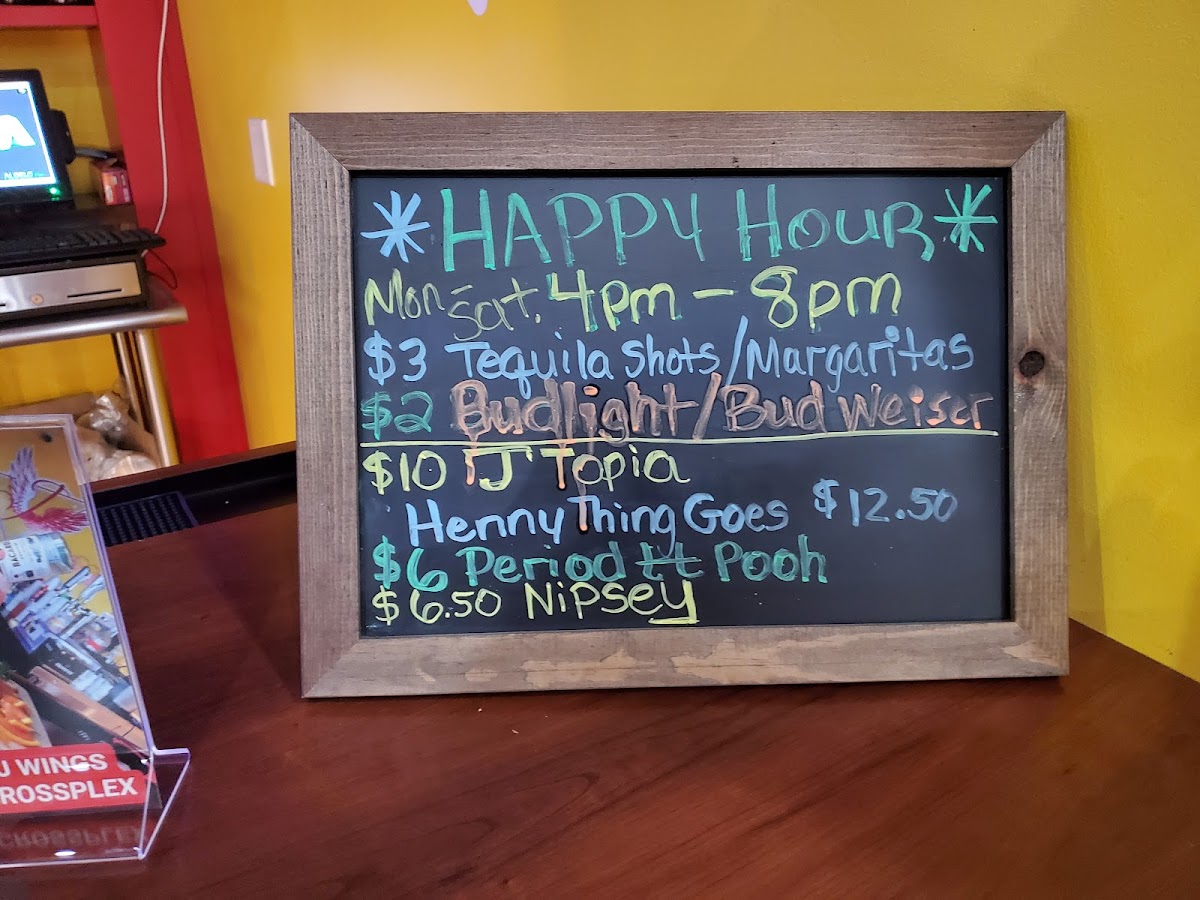 * HAPPY HOUR *
Mon-Sat. 4pm - 8pm
$3 Tequila Shots/Margaritas
$2 Budlight/Budweiser
$10 "J" Topia
Henny Thing Goes $12.50
$6 Period tt Pooh
$6.50 Nipsey
J WINGS
ROSSPLEX